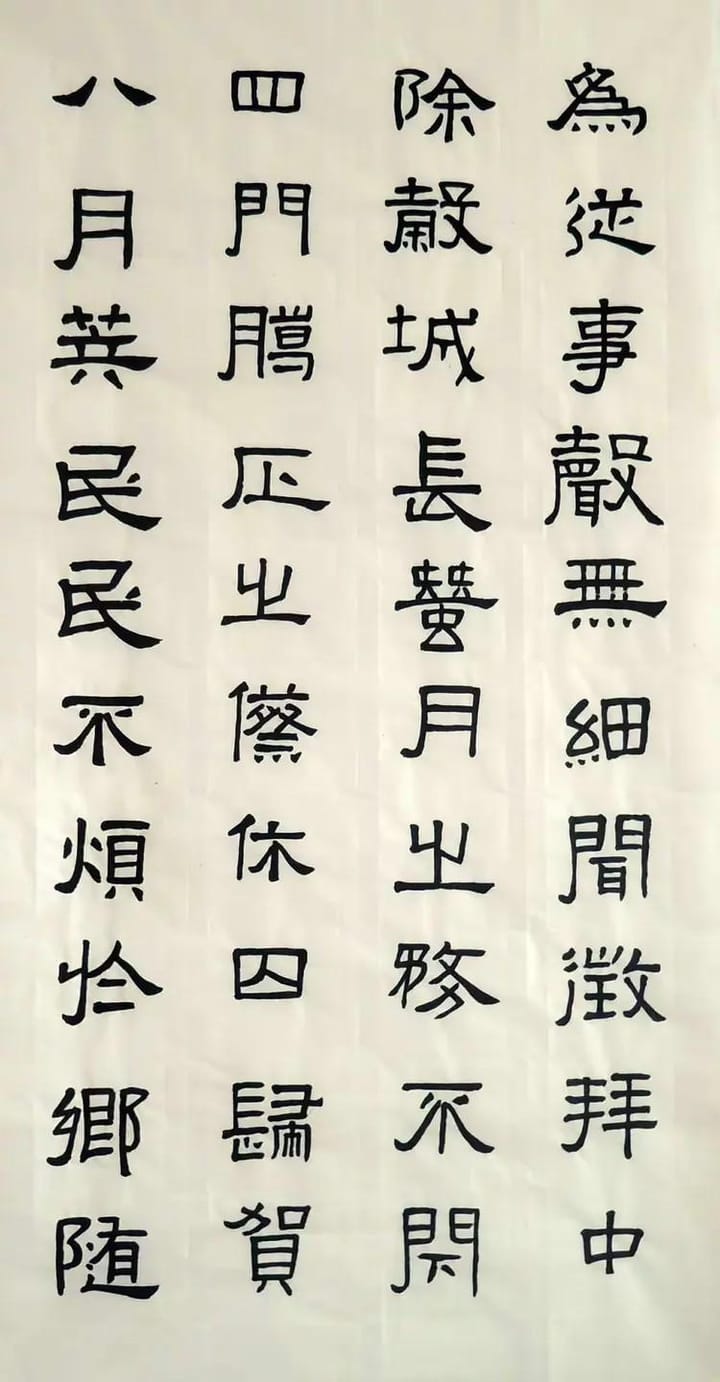 為從事聲無細聞徵拜中
除穀城長蠶月之務不閇
四門臘正之僚休囚歸賀
八月筭民民不煩於鄉隨